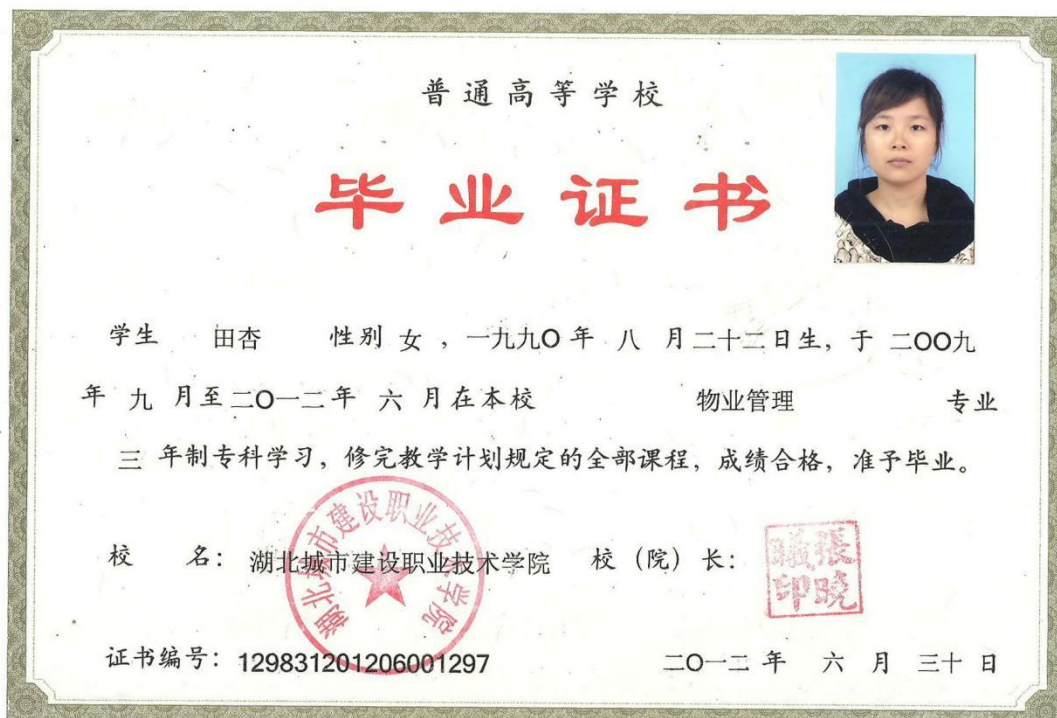 普通高等学校
毕业证书
学生 田杏 性别 女 ，一九九〇年 八 月二十二日生，于 二〇〇九
年 九 月至二〇一二年 六 月在本校 物业管理 专业
三 年制专科学习，修完教学计划规定的全部课程，成绩合格，准予毕业。
湖北城市建设职业技术学院
校 名：湖北城市建设职业技术学院 校（院）长：
張晓曦印
证书编号：129831201206001297 二〇一二 年 六 月 三十 日